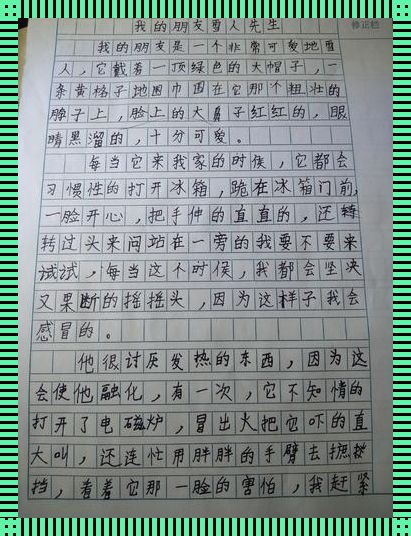 我的朋友雪人先生
修正栏
我的朋友是一个非常可爱地雪
人，它戴着一顶绿色的大帽子，一
条黄格子地围巾围在它那个粗壮的
脖子上，脸上的大鼻子红红的，眼
睛黑溜的，十分可爱。
每当它来我家的时候，它都会
习惯性的打开冰箱，跪在冰箱门前，
一脸开心，把手伸的直直的，还转
转过头来问站在一旁的我要不要来
试试，每当这个时候，我都会坚决
又果断的摇摇头，因为这样子我会
感冒的。
他很讨厌发热的东西，因为这
会使他融化，有一次，它不知情的
打开了电磁炉，冒出火把它吓的直
大叫，还连忙用胖胖的手臂去遮挡
挡，看着它那一脸的害怕，我赶紧